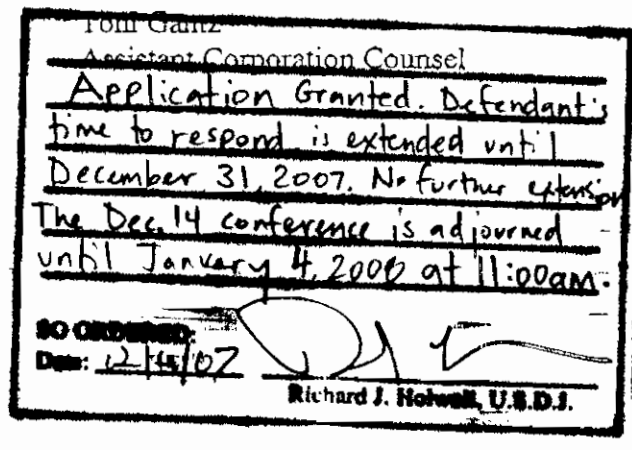 Toni Gantz
Assistant Corporation Counsel
Application Granted. Defendant's
time to respond is extended until
December 31, 2007. No further extension
The Dec. 14 conference is adjourned
until January 4, 2008 at 11:00am.
SO ORDERED:
Date:
Richard J. Holwell, U.S.D.J.